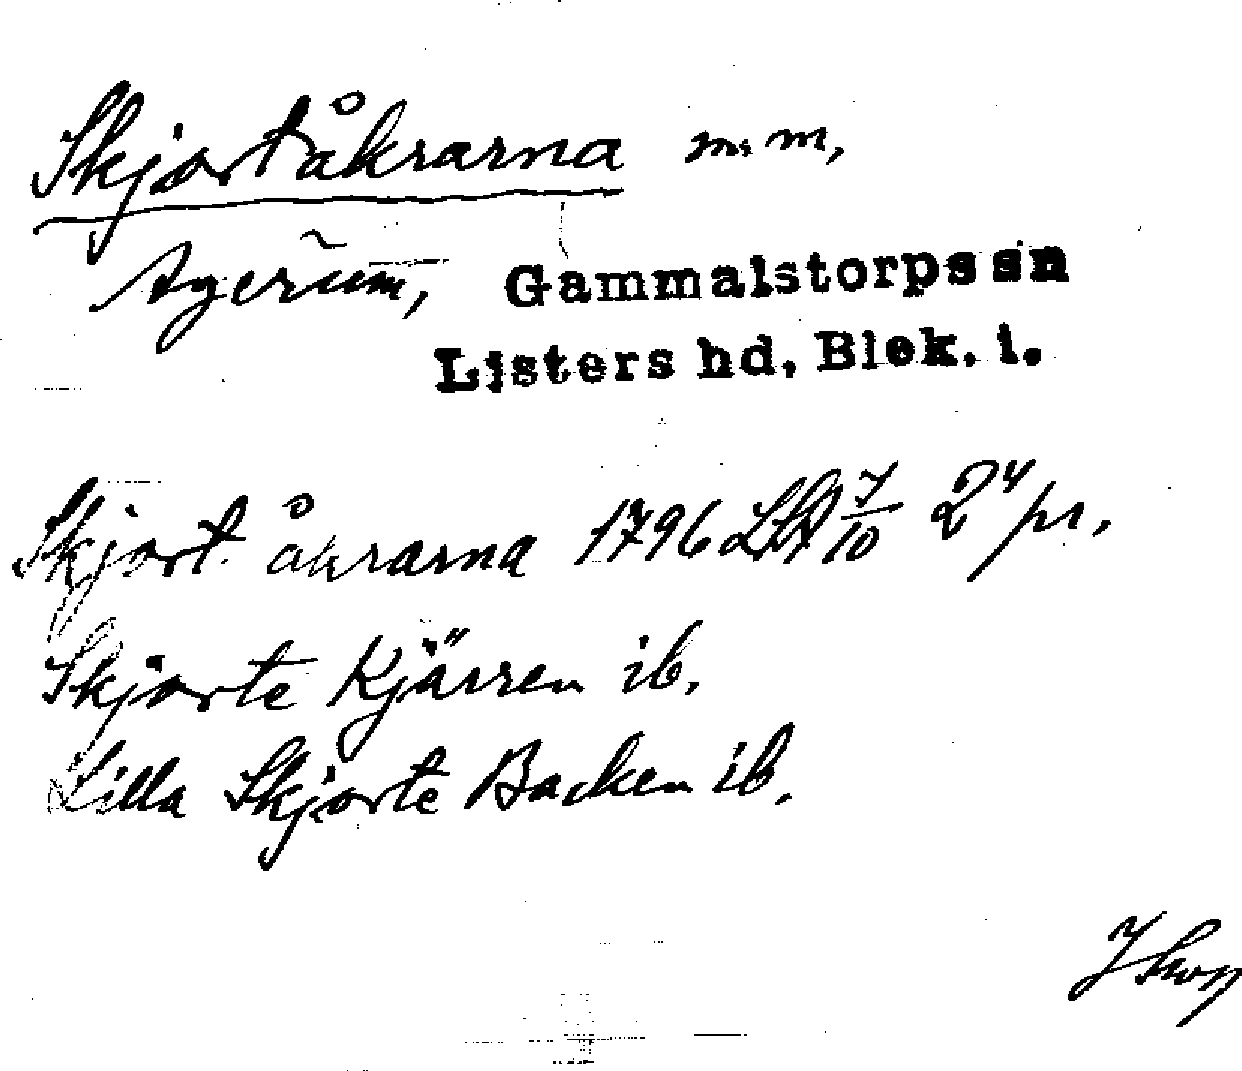 Skjortåkrarna m. m,
Agerum, Gammalstorps sn
Listers hd, Blek. l.
Skjort åkrarna 1796 LSA 7/10 24 pr.
Skjorte Kjärren ib.
Lilla Skjorte Backen ib.